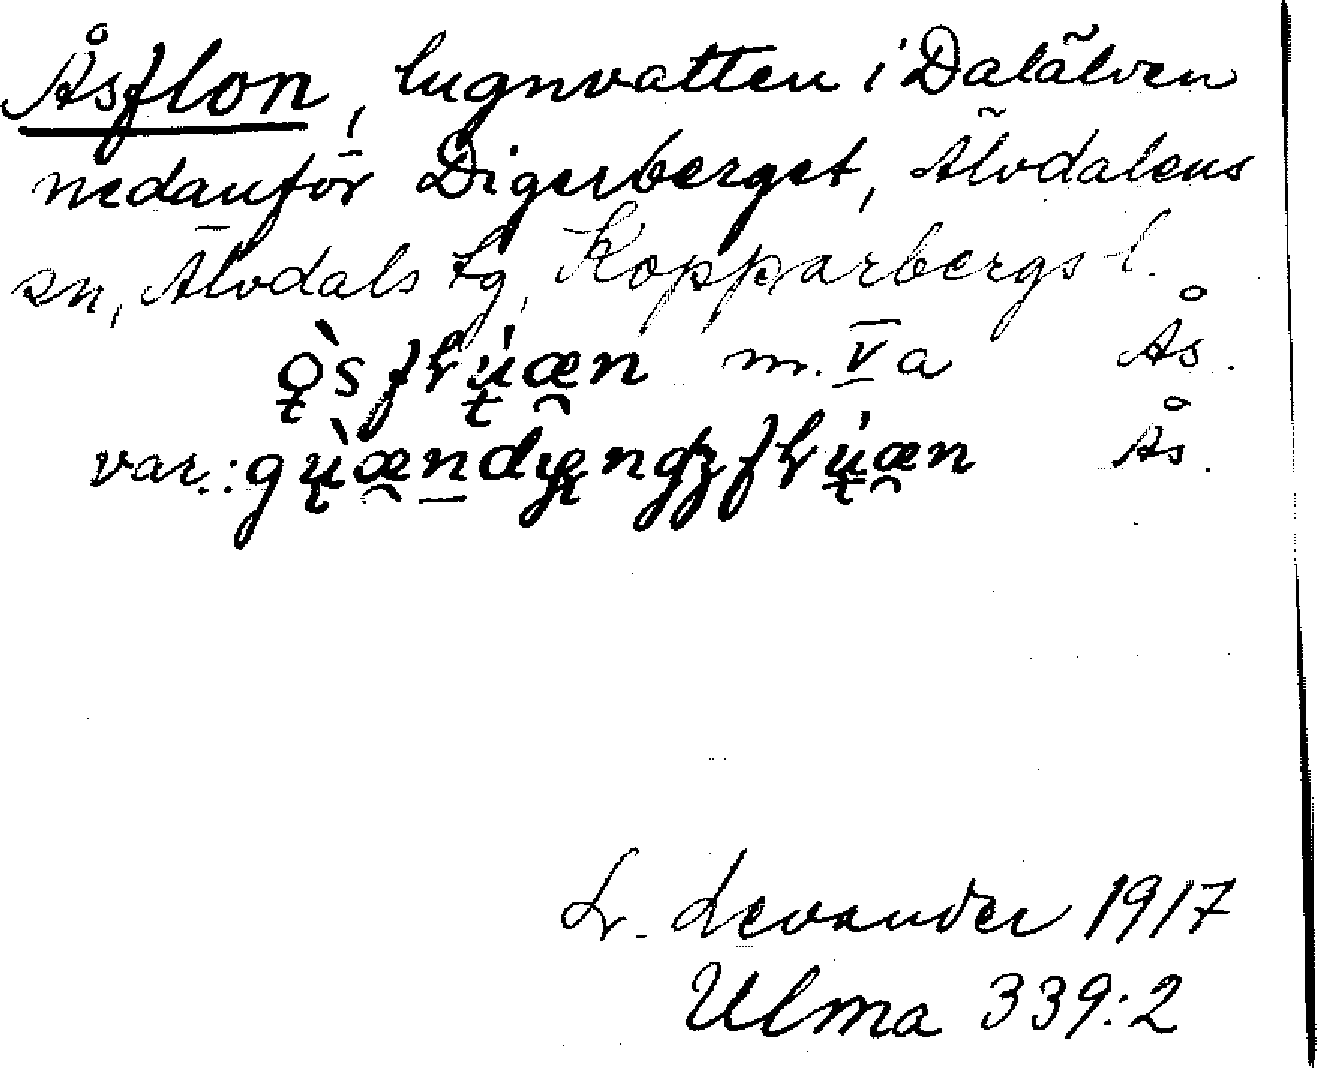 Åsflon, lugnvatten i Dalälven
nedanför Digerberget, Älvdalens
sn, Älvdals tg, Kopparbergs l.
m. V a Ås.
var.: Ås.
L. Levander 1917
Ulma 339:2